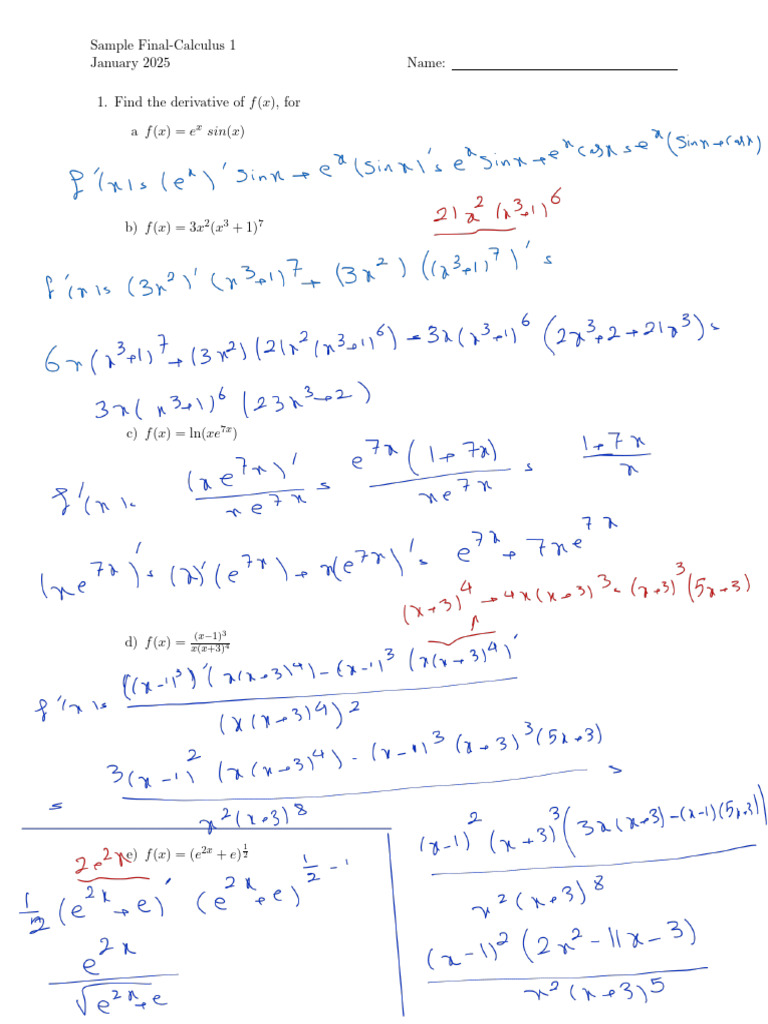 Sample Final-Calculus 1
January 2025 Name:
1. Find the derivative of f(x), for
a f(x) = e^x sin(x)
f'(x)= (e^x)' sinx + e^x (sinx)' = e^x sinx + e^x cosx = e^x (sinx + cosx)
21x^2 (x^3+1)^6
b) f(x) = 3x^2(x^3 + 1)^7
f'(x)= (3x^2)' (x^3+1)^7 + (3x^2) ((x^3+1)^7)' =
6x(x^3+1)^7 + (3x^2)(21x^2(x^3+1)^6) = 3x(x^3+1)^6 (2x^3+2+21x^3) =
3x(x^3+1)^6 (23x^3+2)
c) f(x) = ln(xe^{7x})
f'(x)= (xe^{7x})' / xe^{7x} = e^{7x}(1+7x) / xe^{7x} = 1+7x / x
(xe^{7x})' = (x)'(e^{7x}) + x(e^{7x})' = e^{7x} + 7xe^{7x}
(x+3)^4 + 4x(x+3)^3 = (x+3)^3(5x+3)
d) f(x) = (x−1)^3 / x(x+3)^4
f'(x)= ((x-1)^3)'(x(x+3)^4) - (x-1)^3 (x(x+3)^4)' / (x(x+3)^4)^2
= 3(x-1)^2 (x(x+3)^4) - (x-1)^3 (x+3)^3(5x+3) / x^2(x+3)^8 =
(x-1)^2 (x+3)^3(3x(x+3)-(x-1)(5x+3)) / x^2(x+3)^8
(x-1)^2(2x^2-11x-3) / x^2(x+3)^5
2e^{2x}
e) f(x) = (e^{2x} + e)^{1/2}
1/2 (e^{2x}+e)' (e^{2x}+e)^{1/2 - 1}
e^{2x} / √e^{2x}+e